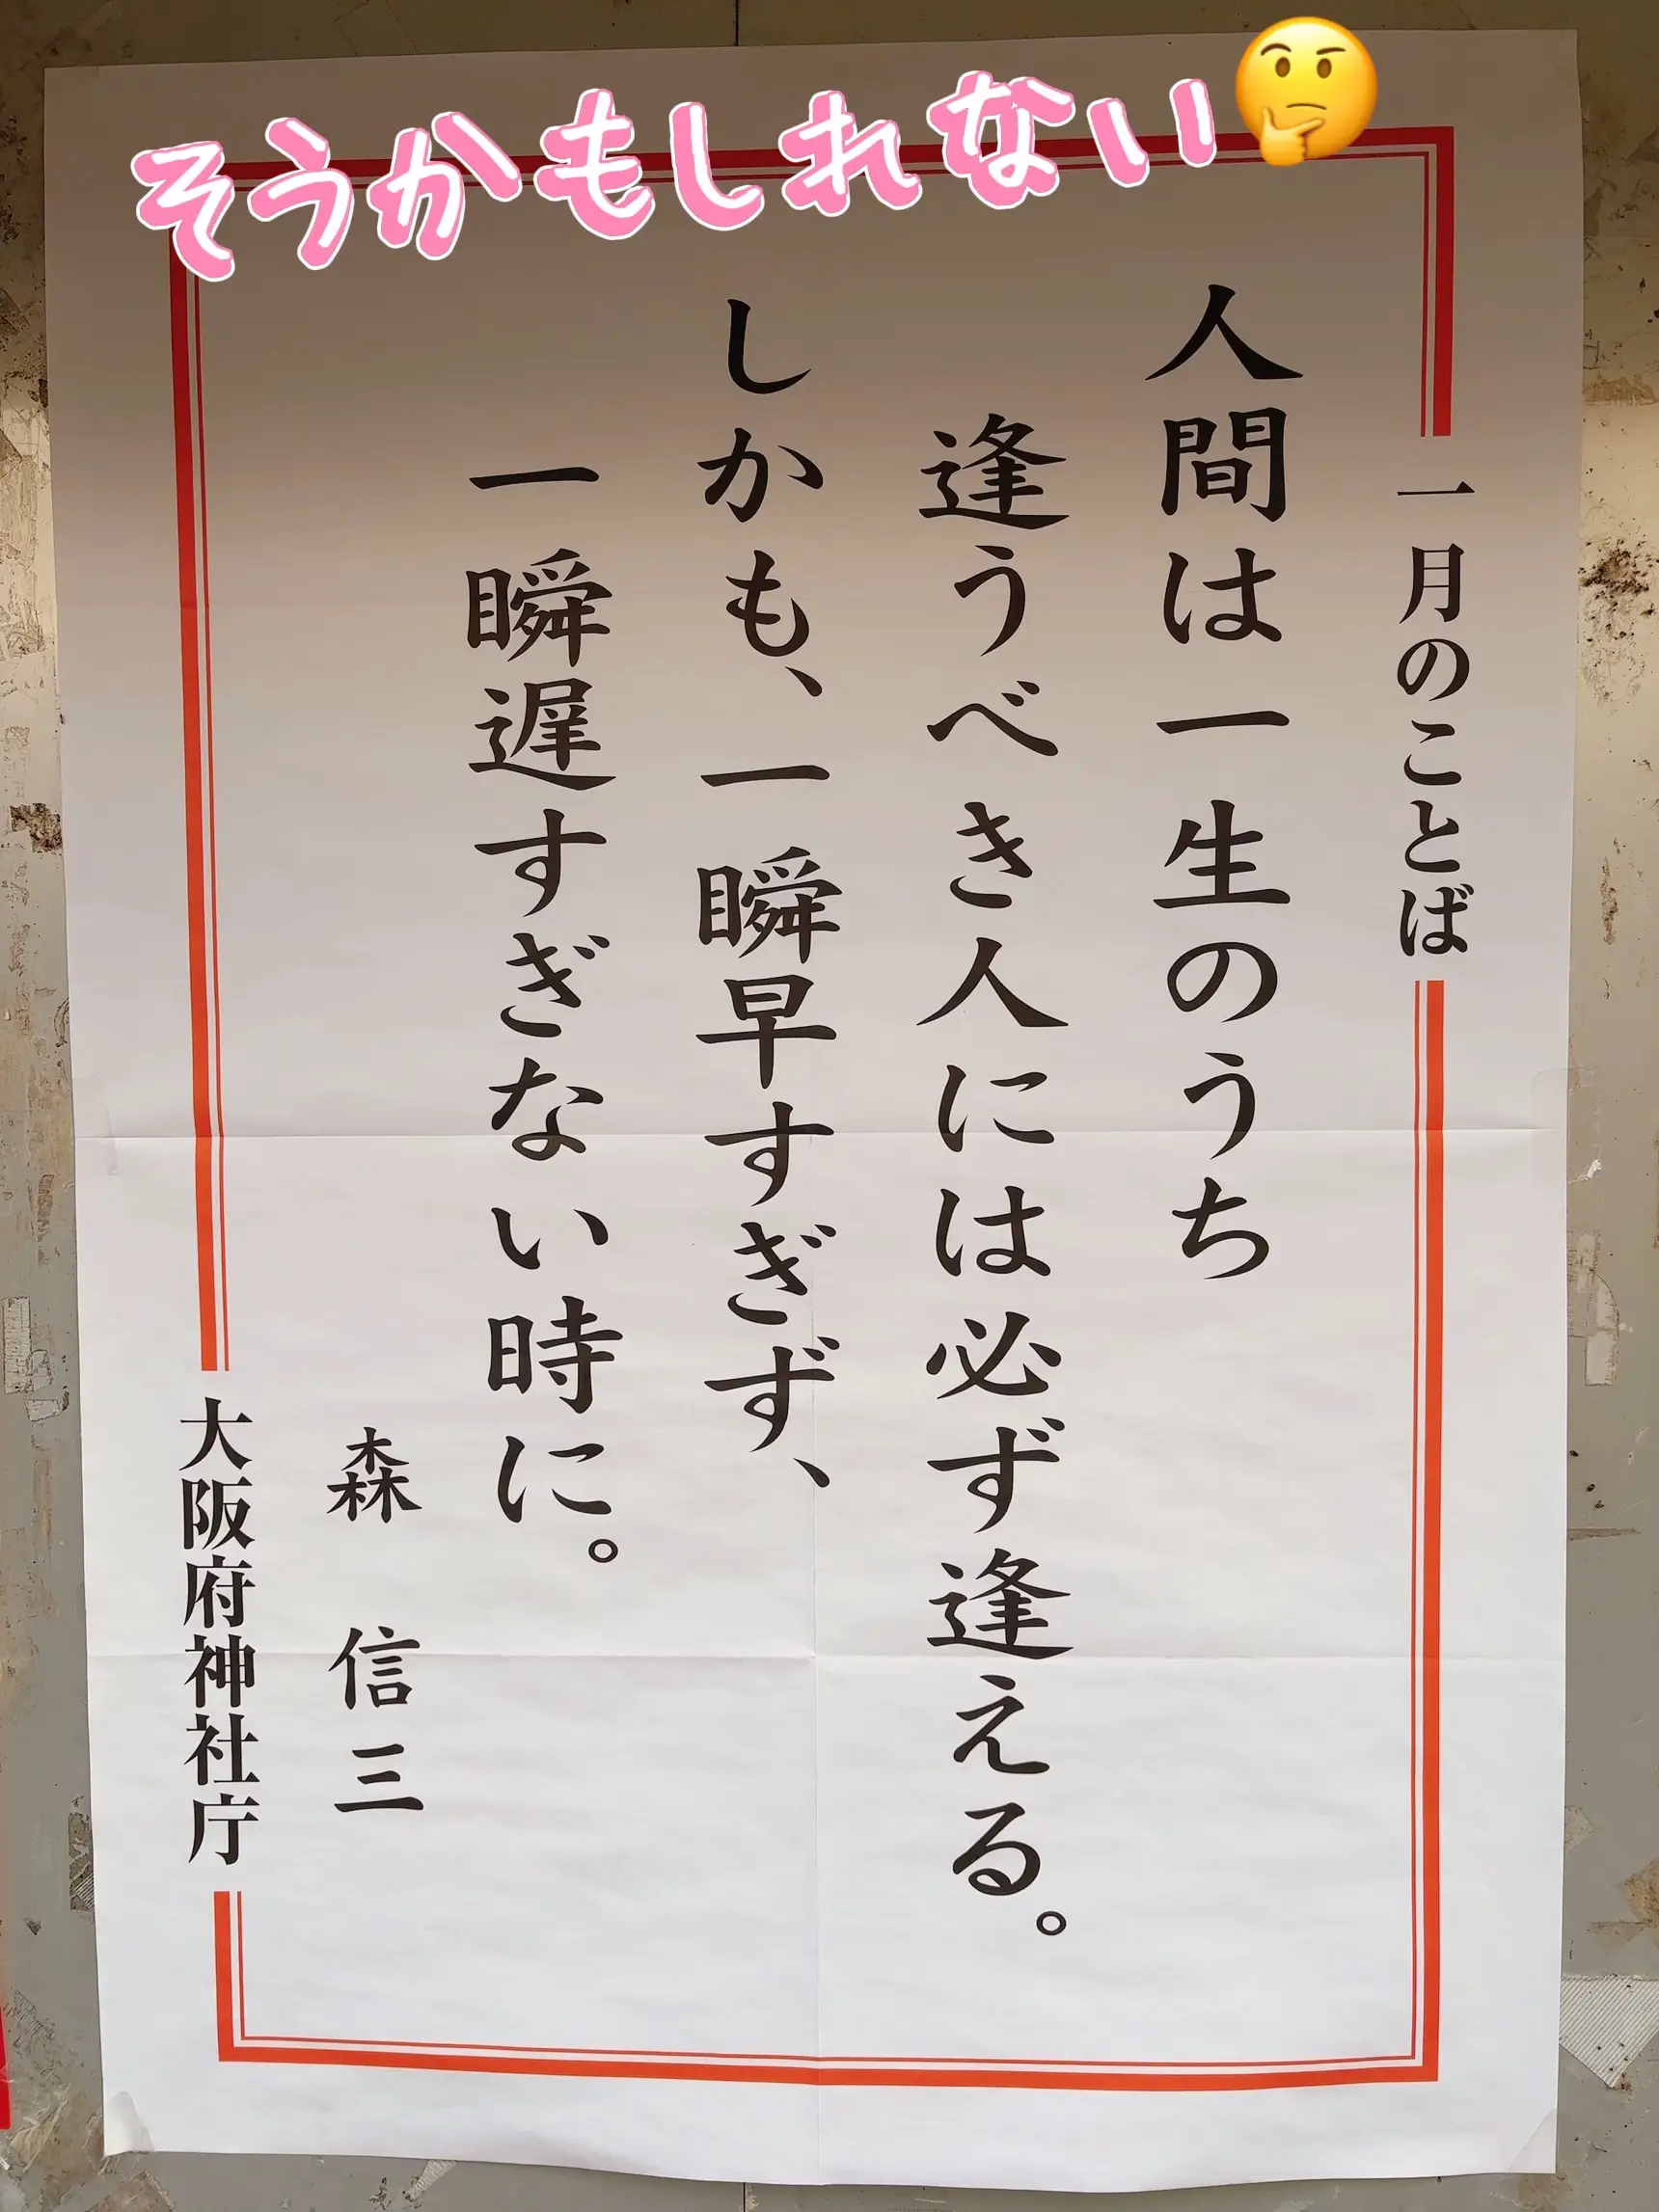 そうかもしれない🤔
一月のことば
人間は一生のうち
逢うべき人には必ず逢える。
しかも、一瞬早すぎず、
一瞬遅すぎない時に。
森 信三
大阪府神社庁